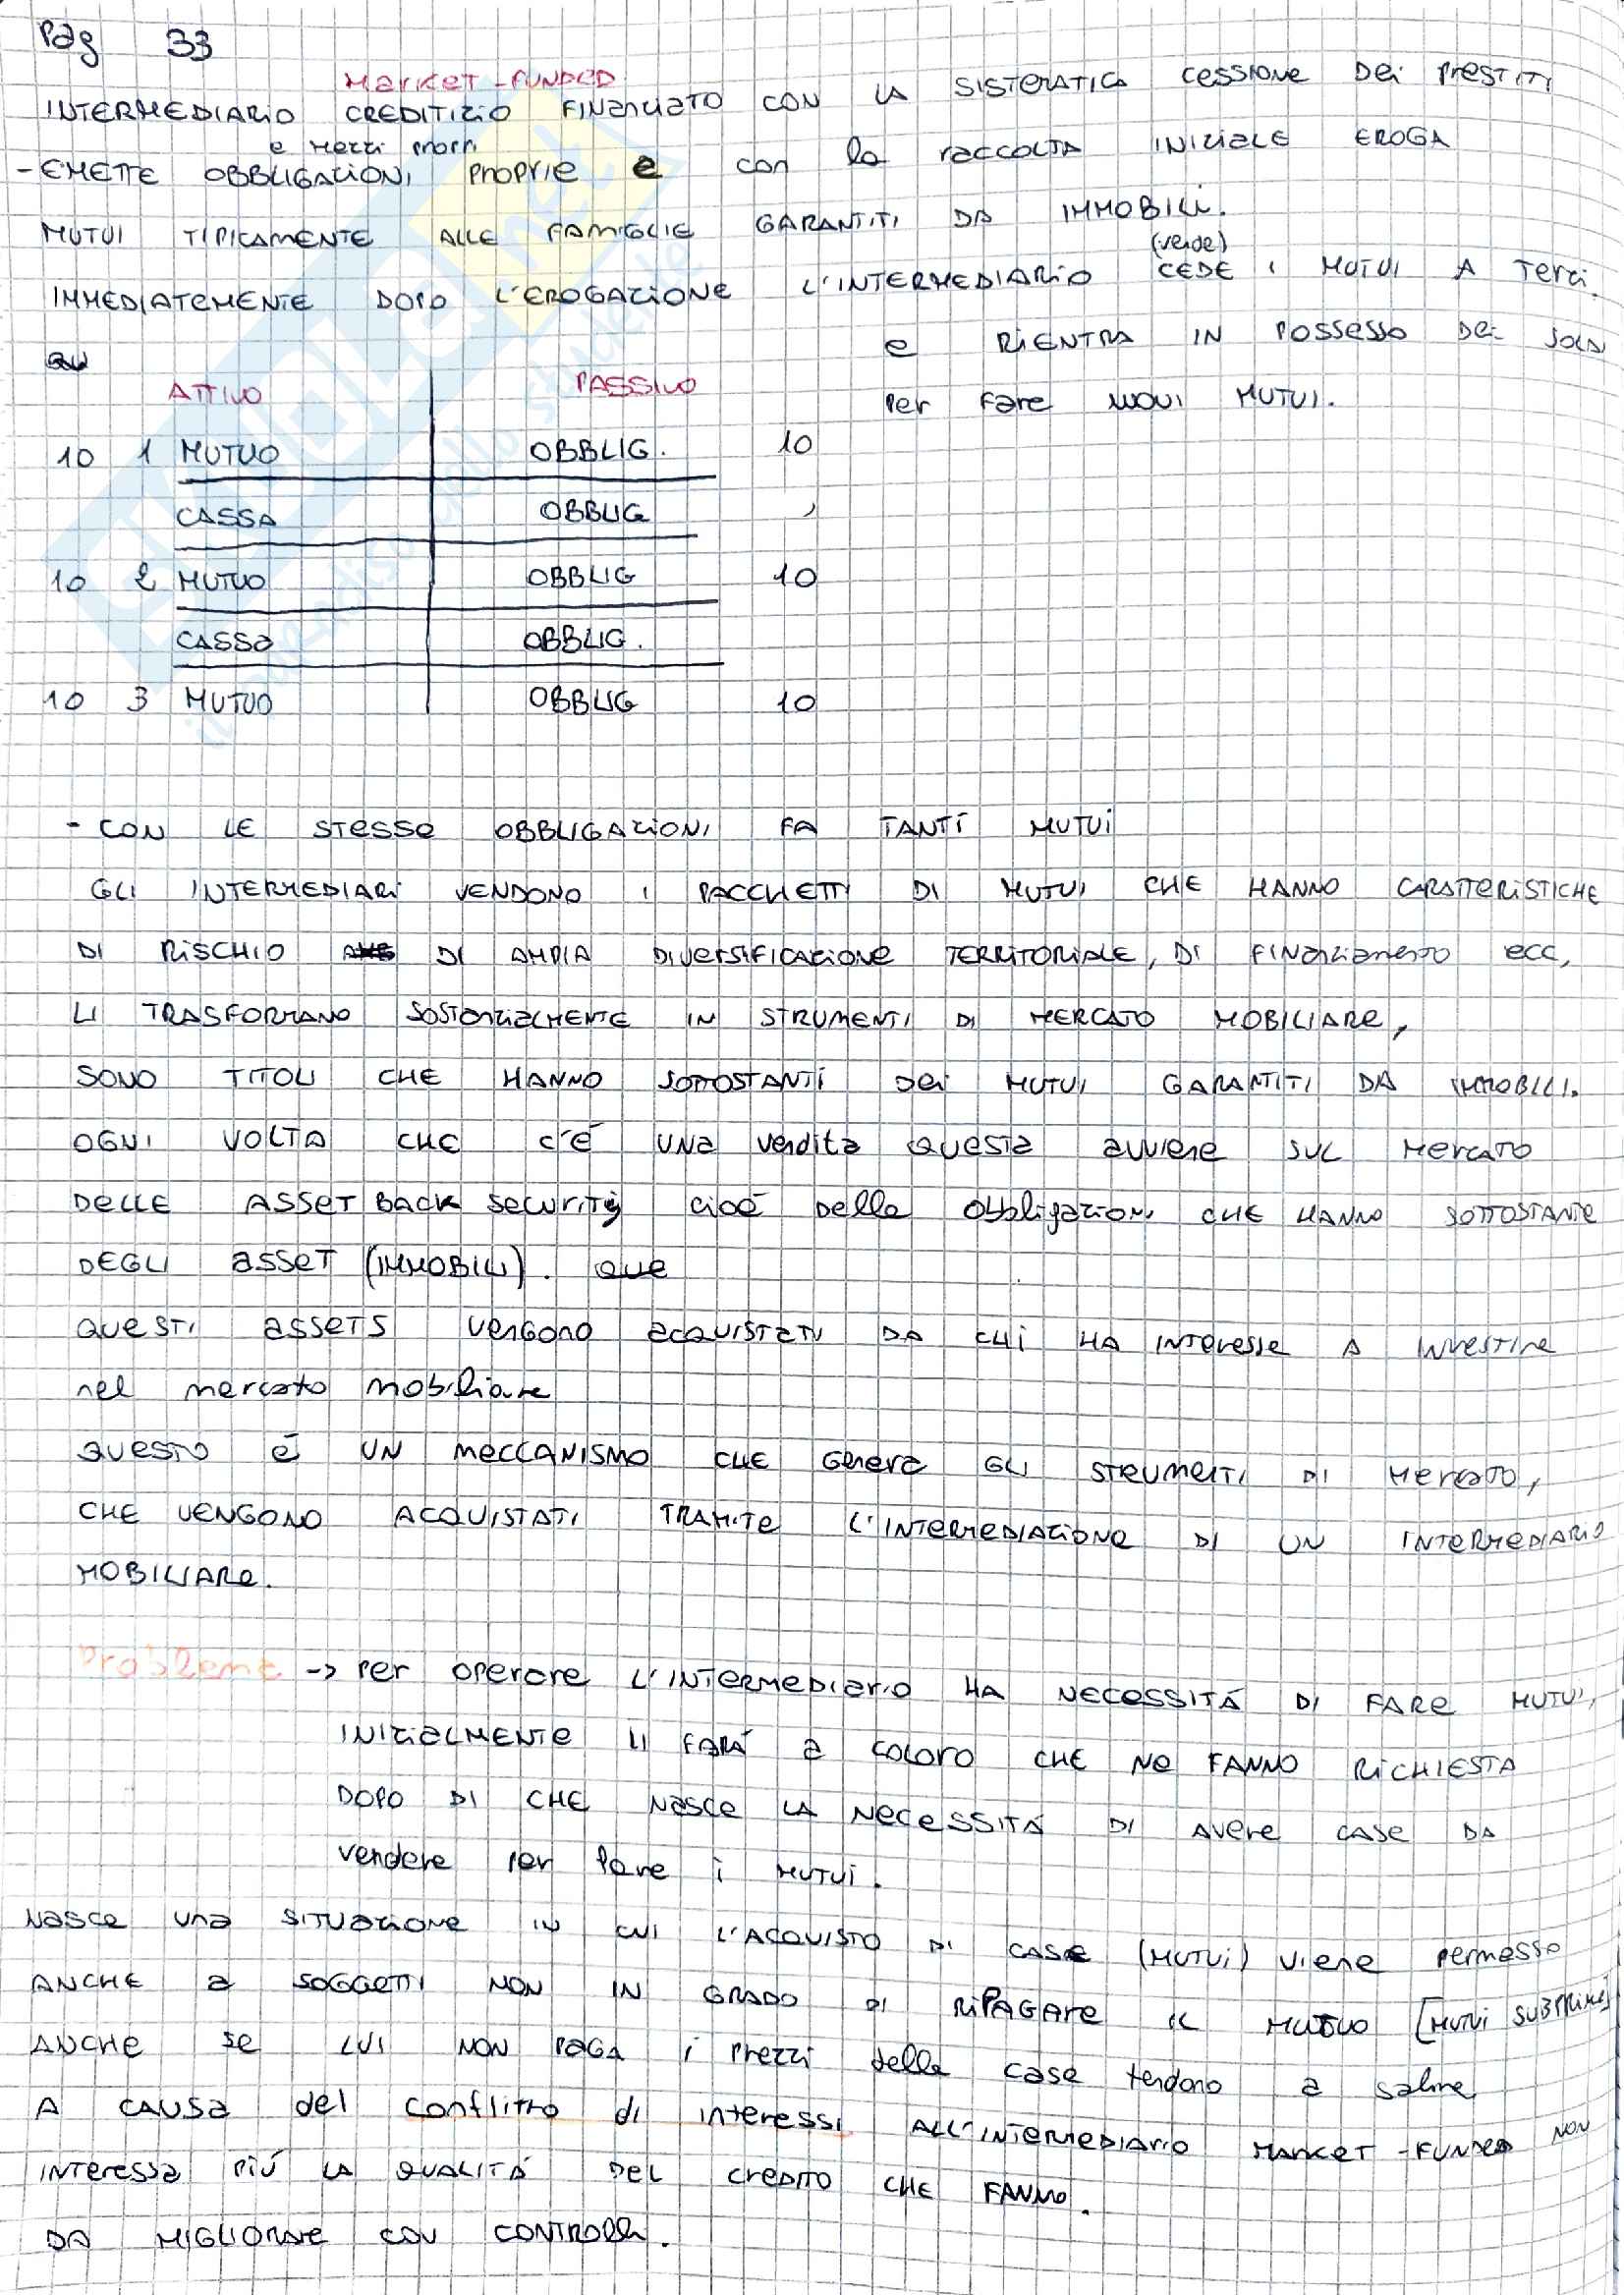 Pag 33
MARKET-FUNDED
INTERMEDIARIO CREDITIZIO FINANZIATO CON LA SISTEMATICA CESSIONE DEI PRESTITI
e mezzi propri
- EMETTE OBBLIGAZIONI PROPRIE e con la RACCOLTA INIZIALE EROGA
MUTUI TIPICAMENTE ALLE FAMIGLIE GARANTITI DA IMMOBILI.
(vende)
IMMEDIATEMENTE DOPO L'EROGAZIONE L'INTERMEDIARIO CEDE I MUTUI A Terzi.
e RIENTRA IN POSSESSO DEI SOLDI
PER FARE NUOVI MUTUI.
ATTIVO PASSIVO
10 1 MUTUO OBBLIG. 10
CASSA OBBLIG
10 2 MUTUO OBBLIG 10
CASSA OBBLIG.
10 3 MUTUO OBBLIG 10
- CON LE STESSE OBBLIGAZIONI FA TANTI MUTUI
GLI INTERMEDIARI VENDONO I PACCHETTI DI MUTUI CHE HANNO CARATTERISTICHE
DI RISCHIO DI AMPIA DIVERSIFICAZIONE TERRITORIALE, DI FINANZIAMENTO ECC,
LI TRASFORMANO SOSTANZIALMENTE IN STRUMENTI DI MERCATO MOBILIARE,
SONO TITOLI CHE HANNO SOTTOSTANTI DEI MUTUI GARANTITI DA IMMOBILI.
OGNI VOLTA CHE C'É UNA vendita QUESTA avviene SUL MERCATO
DELLE ASSET BACK SECURITY cioé delle obbligazioni CHE HANNO SOTTOSTANTE
DEGLI ASSET (IMMOBILI). QUE
QUESTI ASSETS VENGONO ACQUISTATI DA CHI HA INTERESSE A INVESTIRE
nel mercato mobiliare
QUESTO É UN MECCANISMO CHE GENERA GLI STRUMENTI DI MERCATO,
CHE VENGONO ACQUISTATI TRAMITE L'INTERMEDIAZIONE DI UN INTERMEDIARIO
MOBILIARE.
Problema -> PER OPERARE L'INTERMEDIARIO HA NECESSITÁ DI FARE MUTUI,
INIZIALMENTE LI FARÁ A COLORO CHE NE FANNO RICHIESTA
DOPO DI CHE NASCE LA NECESSITÁ DI AVERE CASE DA
vendere per fare i MUTUI.
NASCE UNA SITUAZIONE IN CUI L'ACQUISTO DI CASE (MUTUI) VIENE PERMESSO
ANCHE A SOGGETTI NON IN GRADO DI RIPAGARE IL MUTUO [MUTUI SUBPRIME]
ANCHE SE LUI NON PAGA i PREZZI delle CASE tendono a salire
A CAUSA del conflitto di interessi ALL'INTERMEDIARIO MARKET-FUNDED NON
INTERESSA PIÚ LA QUALITÁ DEL CREDITO CHE FANNO.
DA MIGLIORARE CON CONTROLLI.